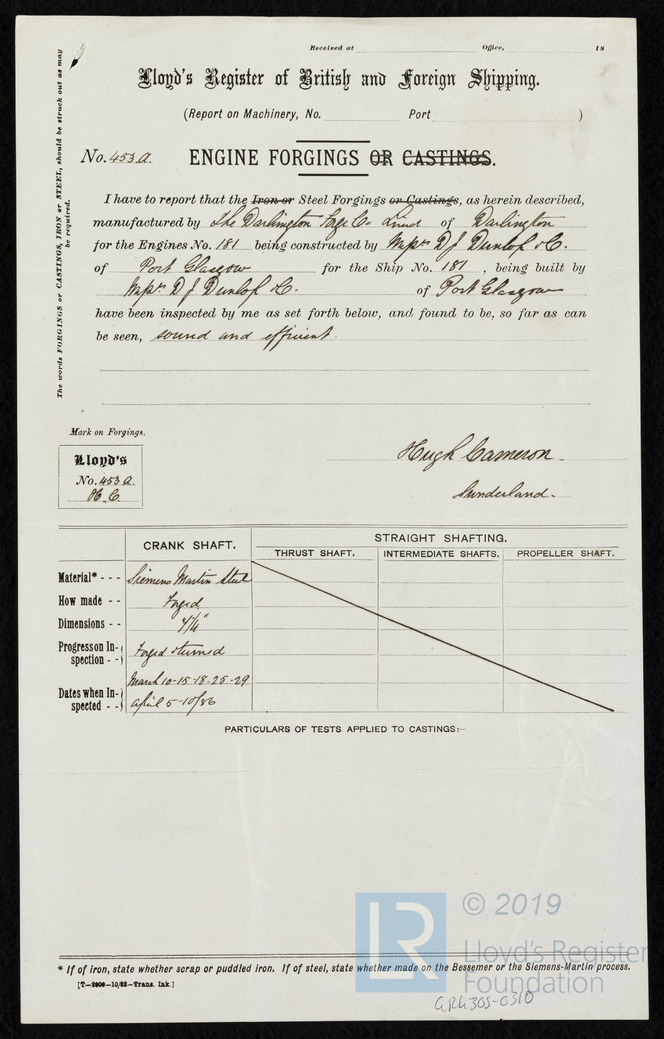 Received at Office, 18
Lloyd's Register of British and Foreign Shipping.
(Report on Machinery, No. Port )
The words FORGINGS or CASTINGS, IRON or STEEL, should be struck out as may be required.
No. 453 a. ENGINE FORGINGS OR CASTINGS.
I have to report that the Iron or Steel Forgings or Castings, as herein described,
manufactured by The Darlington Forge Co. Limd of Darlington
for the Engines No. 181 being constructed by D J Dunlop & C.
of Port Glasgow for the Ship No. 181, being built by
D J Dunlop & C. of Port Glasgow
have been inspected by me as set forth below, and found to be, so far as can
be seen, sound and efficient.
Mark on Forgings.
Lloyd's
No. 453 a.
H. C.
Hugh Cameron
Sunderland.
CRANK SHAFT. STRAIGHT SHAFTING.
THRUST SHAFT. INTERMEDIATE SHAFTS. PROPELLER SHAFT.
Material* - - - Siemens Martin Steel
How made - - Forged
Dimensions - -
Progress on Inspection - - Forged & turned
Dates when Inspected - - March 10-15-18-25-29
April 5-10/86
PARTICULARS OF TESTS APPLIED TO CASTINGS:–
LR © 2019
Lloyd's Register
Foundation
* If of iron, state whether scrap or puddled iron. If of steel, state whether made on the Bessemer or the Siemens-Martin process.
10/82—Trans. Ink.]
GRG305-0310